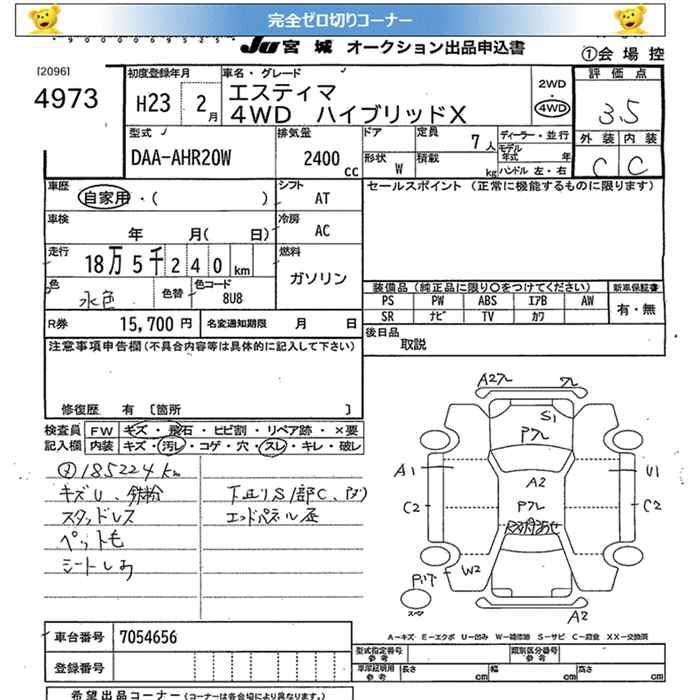 完全ゼロ切りコーナー
JU 宮城 オークション出品申込書
①会場控
[2096]
4973
初度登録年月
H23 2月
車名・グレード
エスティマ
4WD ハイブリッドX
2WD
4WD
評価点
3.5
外装 内装
C C
型式
DAA-AHR20W
排気量
2400 cc
ドア
形状 W
定員 7人
積載 kg
ディーラー・並行
モデル年式 年
ハンドル 左・右
車歴
自家用・( )
シフト
AT
セールスポイント (正常に機能するものに限ります)
車検
年 月( 日)
冷房
AC
走行
18万5千240km
燃料
ガソリン
色
水色
色替
色コード
8U8
装備品(純正品に限り○をつけてください)
新車保証書
PS PW ABS エアB AW
有・無
SR ナビ TV カワ
R券 15,700円
名変通知期限 月 日
後日品
取説
注意事項申告欄(不具合内容等は具体的に記入して下さい)
修復歴 有 [箇所 ]
検査員記入欄
FW キズ・飛石・ヒビ割・リペア跡・×要
内装 キズ・汚レ・コゲ・穴・スレ・キレ・破レ
185224km
キズU、鉄粉
スタッドレス
ペット毛
シートしみ
下廻りS1部C、
エンドパネル歪
A2
S1
A2
A1
U1
C2
C2
W2
A2
A-キズ E-エクボ U-凹み W-補修跡 S-サビ C-腐食 XX-交換済
車台番号 7054656
登録番号
型式指定番号
参考
類別区分番号
参考
車庫証明用
参考
長さ cm
幅 cm
高さ cm
希望出品コーナー(コーナーは各会場により異なります。)